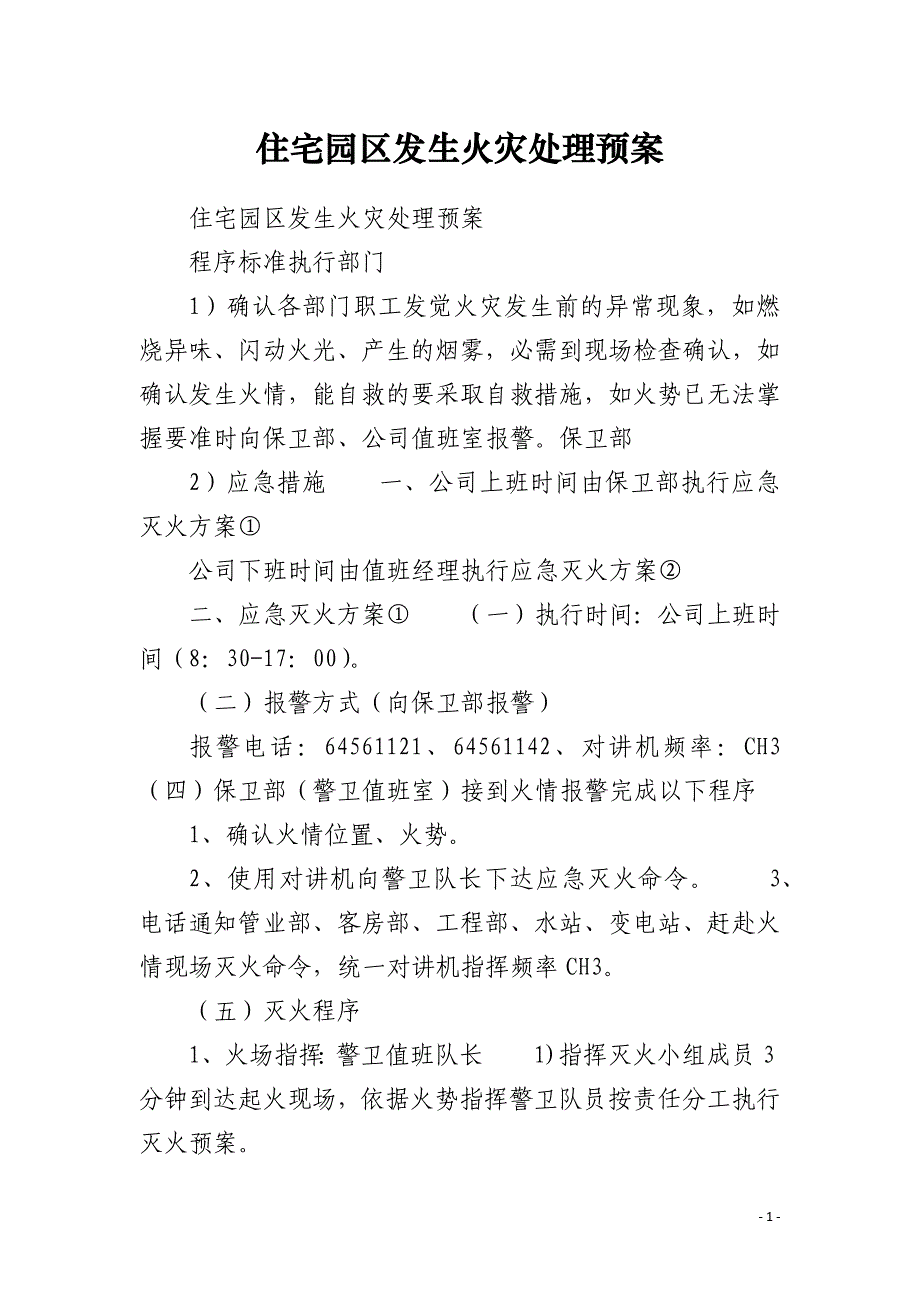 住宅园区发生火灾处理预案
住宅园区发生火灾处理预案
程序标准执行部门
1）确认各部门职工发觉火灾发生前的异常现象，如燃
烧异味、闪动火光、产生的烟雾，必需到现场检查确认，如
确认发生火情，能自救的要采取自救措施，如火势已无法掌
握要准时向保卫部、公司值班室报警。保卫部
2）应急措施 一、公司上班时间由保卫部执行应急
灭火方案①
公司下班时间由值班经理执行应急灭火方案②
二、应急灭火方案① （一）执行时间：公司上班时
间（8：30-17：00）。
（二）报警方式（向保卫部报警）
报警电话：64561121、64561142、对讲机频率：CH3
（四）保卫部（警卫值班室）接到火情报警完成以下程序
1、确认火情位置、火势。
2、使用对讲机向警卫队长下达应急灭火命令。 3、
电话通知管业部、客房部、工程部、水站、变电站、赶赴火
情现场灭火命令，统一对讲机指挥频率 CH3。
（五）灭火程序
1、火场指挥：警卫值班队长 1)指挥灭火小组成员 3
分钟到达起火现场，依据火势指挥警卫队员按责任分工执行
灭火预案。
- 1 -